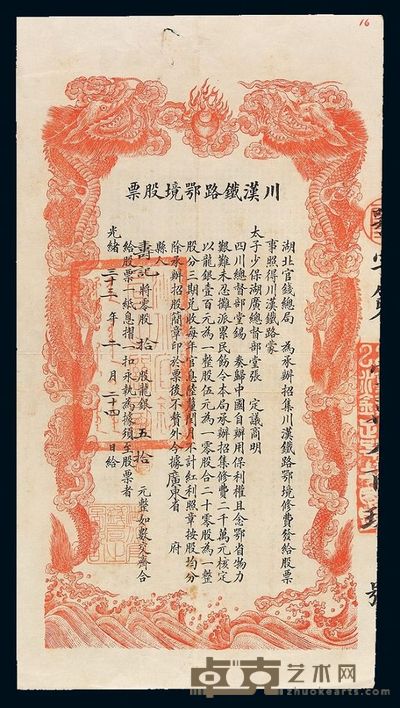 16
川漢鐵路鄂境股票
湖北官錢總局 為承辦招集川漢鐵路鄂境修費發給股票
事照得川漢鐵路蒙
太子少保湖廣總督部堂張 定議商明
四川總督部堂錫 奏歸中國自辦用保利權且念鄂省物力
艱難未忍攤派累民飭令本局承辦招集修費二千萬元核定
以龍銀壹百元為一整股伍元為一零股合二十零股為一整
股分三期兌收每年官息陸釐閏月不計紅利照章按股均分
除承辦招股簡章印於票後不贅外今據廣東省 府
縣人
壽記將零股 拾 股龍銀 五拾 元整如數交齊合
給股票一紙息摺一扣永執為據須至股票者
光緒三十三年十二月二十四日給
號
卓克艺术网
zhuokearts.com